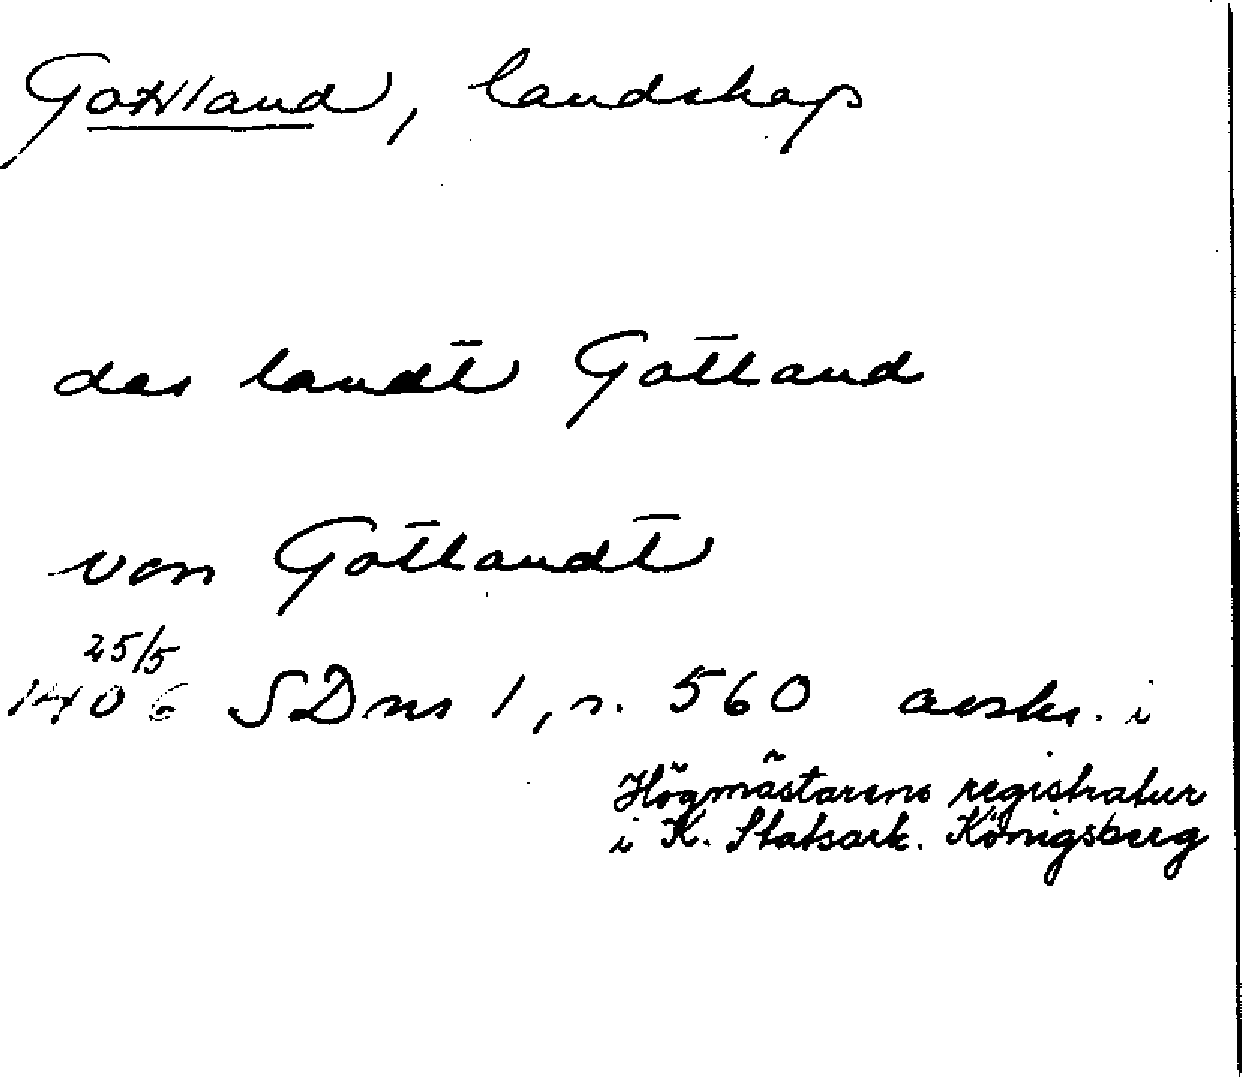 Gotland, landskap
das landt Gotland
von Gotlandt
25/5
1406 SDns 1, n. 560 avskr. i
Högmästarens registratur
i K. Statsark. Königsberg